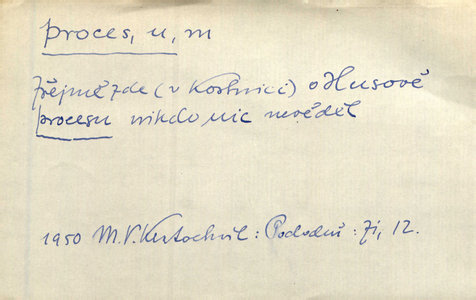 proces, u, m
Zřejmě zde (v Kostnici) o Husově
procesu nikdo nic nevěděl
1950 M.V.Kratochvíl: Pochodeň: 71, 12.